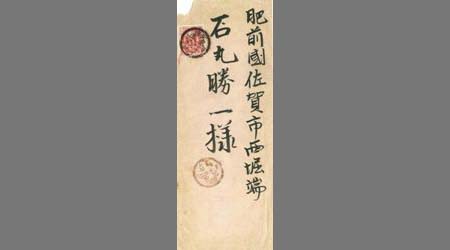 肥前國佐賀市西堀端
石丸勝一様